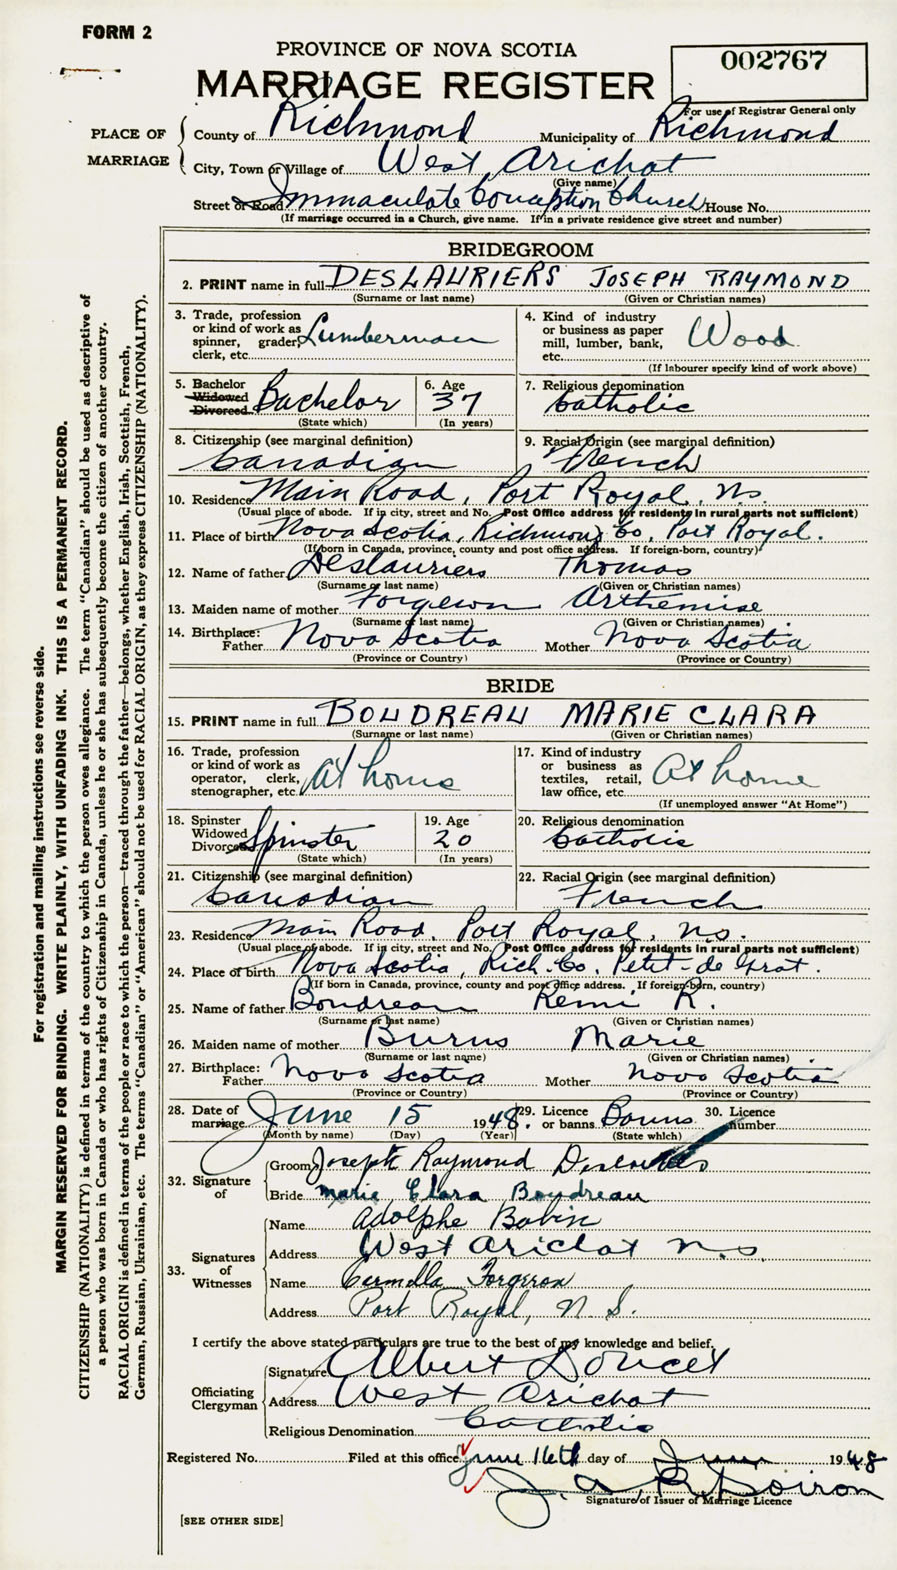 FORM 2
PROVINCE OF NOVA SCOTIA
MARRIAGE REGISTER
002767
For use of Registrar General only
PLACE OF MARRIAGE
County of Richmond Municipality of Richmond
City, Town or Village of West Arichat
(Give name)
Street or Road Immaculate Conception Church House No.
(If marriage occurred in a Church, give name. If in a private residence give street and number)
BRIDEGROOM
2. PRINT name in full DESLAURIERS JOSEPH RAYMOND
(Surname or last name) (Given or Christian names)
3. Trade, profession or kind of work as spinner, grader, clerk, etc. Lumberman
4. Kind of industry or business as paper mill, lumber, bank, etc. Wood
(If labourer specify kind of work above)
5. Bachelor Widowed Divorced Bachelor
(State which)
6. Age 37
(In years)
7. Religious denomination Catholic
8. Citizenship (see marginal definition) Canadian
9. Racial Origin (see marginal definition) French
10. Residence Main Road, Port Royal, N.S.
(Usual place of abode. If in city, street and No. Post Office address for residents in rural parts not sufficient)
11. Place of birth Nova Scotia, Richmond Co, Port Royal.
(If born in Canada, province, county and post office address. If foreign-born, country)
12. Name of father Deslauriers Thomas
(Surname or last name) (Given or Christian names)
13. Maiden name of mother Forgeron Arthemise
(Surname or last name) (Given or Christian names)
14. Birthplace: Father Nova Scotia Mother Nova Scotia
(Province or Country) (Province or Country)
BRIDE
15. PRINT name in full BOUDREAU MARIE CLARA
(Surname or last name) (Given or Christian names)
16. Trade, profession or kind of work as operator, clerk, stenographer, etc. At home
17. Kind of industry or business as textiles, retail, law office, etc. At home
(If unemployed answer "At Home")
18. Spinster Widowed Divorced Spinster
(State which)
19. Age 20
(In years)
20. Religious denomination Catholic
21. Citizenship (see marginal definition) Canadian
22. Racial Origin (see marginal definition) French
23. Residence Main Road, Port Royal, N.S.
(Usual place of abode. If in city, street and No. Post Office address for residents in rural parts not sufficient)
24. Place of birth Nova Scotia, Rich. Co. Petit-de Grat.
(If born in Canada, province, county and post office address. If foreign-born, country)
25. Name of father Boudreau Remi R.
(Surname or last name) (Given or Christian names)
26. Maiden name of mother Burns Marie
(Surname or last name) (Given or Christian names)
27. Birthplace: Father Nova Scotia Mother Nova Scotia
(Province or Country) (Province or Country)
28. Date of marriage June 15 1948.
(Month by name) (Day) (Year)
29. Licence or banns Banns
(State which)
30. Licence number
32. Signature of
Groom Joseph Raymond Deslauriers
Bride Marie Clara Boudreau
33. Signatures of Witnesses
Name Adolphe Babin
Address West Arichat N.S
Name Carmella Forgeron
Address Port Royal, N.S.
I certify the above stated particulars are true to the best of my knowledge and belief.
Officiating Clergyman
Signature Albert Doucet
Address West Arichat
Religious Denomination Catholic
Registered No. Filed at this office June 16th day of June 1948
J. A. R. Doiron
Signature of Issuer of Marriage Licence
[SEE OTHER SIDE]
For registration and mailing instructions see reverse side.
MARGIN RESERVED FOR BINDING. WRITE PLAINLY, WITH UNFADING INK. THIS IS A PERMANENT RECORD.
CITIZENSHIP (NATIONALITY) is defined in terms of the country to which the person owes allegiance. The term "Canadian" should be used as descriptive of
a person who was born in Canada or who has rights of Citizenship in Canada, unless he or she has subsequently become the citizen of another country.
RACIAL ORIGIN is defined in terms of the people or race to which the person—traced through the father—belongs, whether English, Irish, Scottish, French,
German, Russian, Ukrainian, etc. The terms "Canadian" or "American" should not be used for RACIAL ORIGIN, as they express CITIZENSHIP (NATIONALITY).